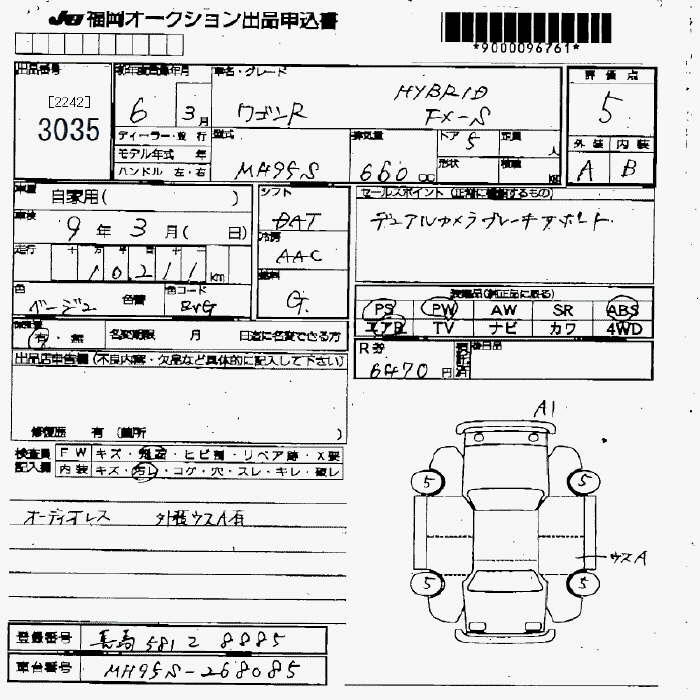 JU 福岡オークション出品申込書
*9000096761*
出品番号
[2242]
3035
初年度登録年月
6 3月
ディーラー・並行
モデル年式 年
ハンドル 左・右
車名・グレード
ワゴンR HYBRID
FX-S
型式
MH95S
排気量
660 cc
ドア 5
形状
定員 人
積載 KG
評価点
5
外装 内装
A B
車歴
自家用( )
車検
9年 3月( 日)
走行 十 万 千 百 十
10,211 km
色
ベージュ
色替
色コード
シフト
DAT
冷房
AAC
燃料
G.
セールスポイント(正確に確認するもの)
デュアルカメラブレーキサポート
装備品(純正品に限る)
PS PW AW SR ABS
エアB TV ナビ カワ 4WD
有・無 名変期限 月 日迄に名変できる方
R券
6470円
後日品
出品店申告欄(不良内容・欠品など具体的に記入して下さい)
修復歴 有(箇所 )
検査員
記入欄
FW キズ・飛石・ヒビ割・リペア跡・X要
内装 キズ・汚レ・コゲ・穴・スレ・キレ・破レ
オーディオレス 外装ウスA有
A1
5 5
ウスA
5 5
登録番号 長崎 581 こ 8885
車台番号 MH95S-268085